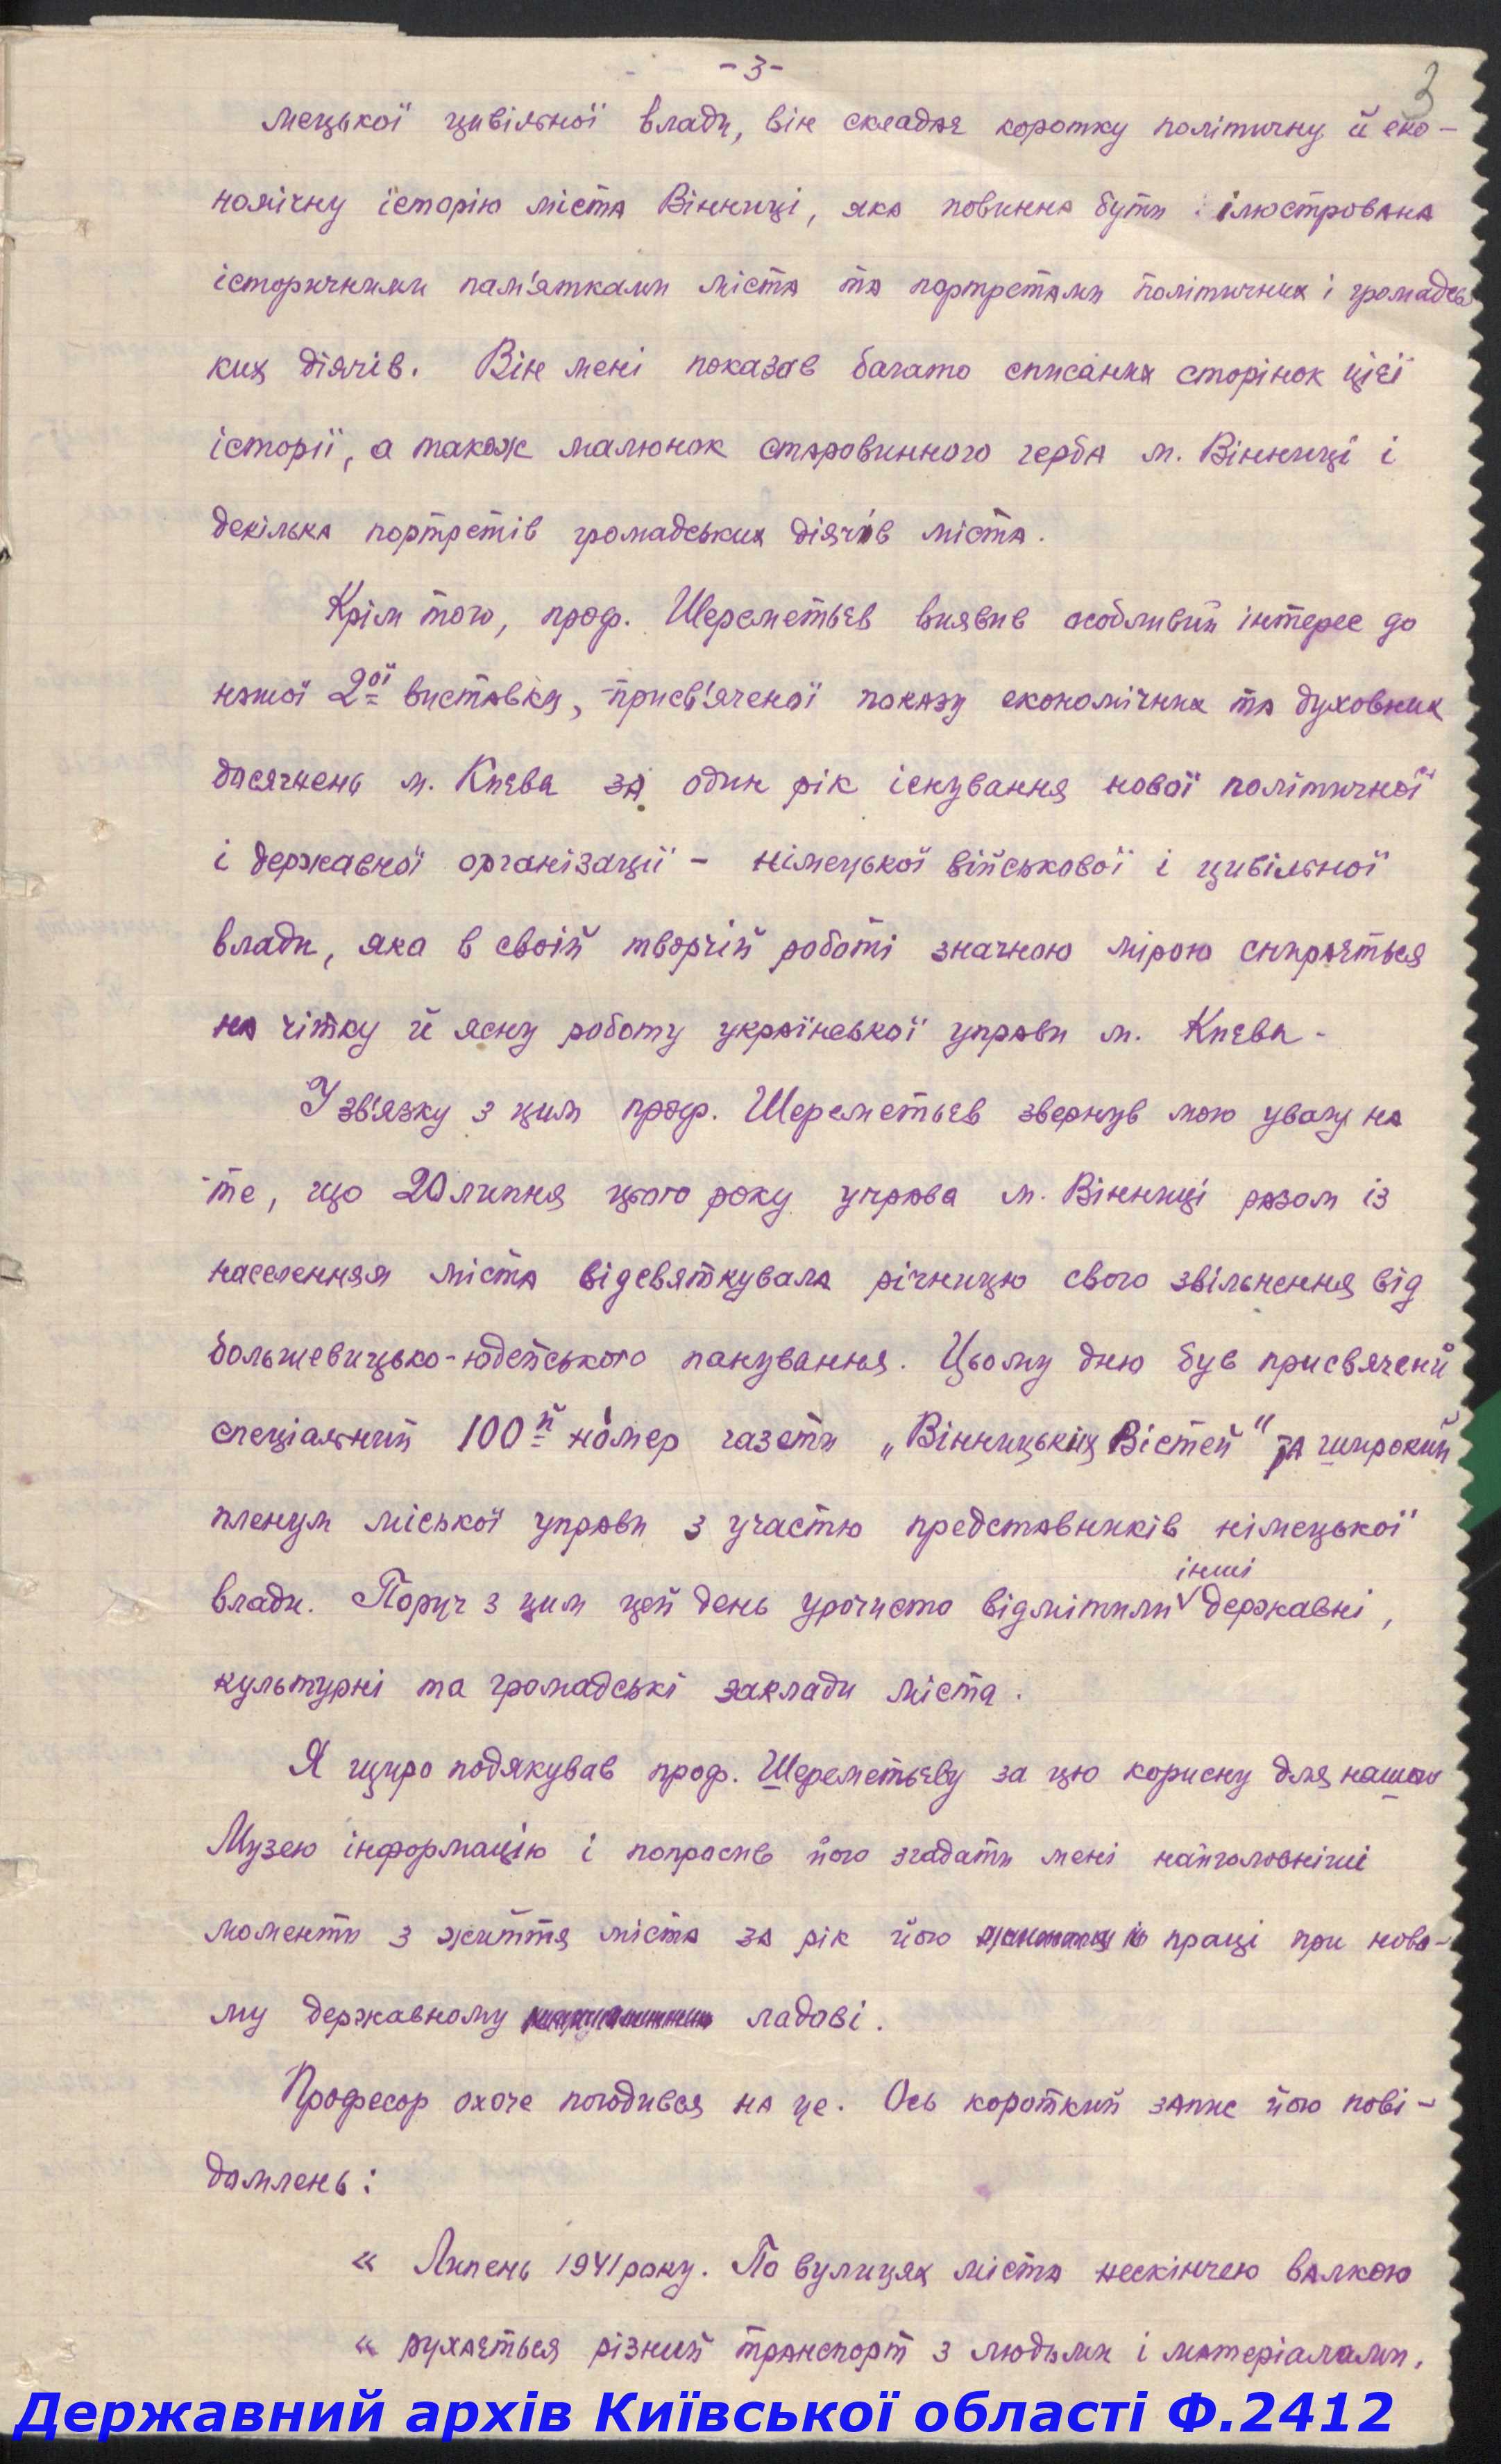 - 3 -
3
мецької цивільної влади, він складає коротку політичну й еко-
номічну історію міста Вінниці, яка повинна бути ілюстрована
історичними пам'ятками міста та портретами політичних і громадсь
ких діячів. Він мені показав багато списаних сторінок цієї
історії, а також малюнок старовинного герба м. Вінниці і
декілька портретів громадських діячів міста.
Крім того, проф. Шереметьєв виявив особливий інтерес до
нашої 2ої виставки, присв'яченої показу економічних та духовних
досягнень м. Києва за один рік існування нової політичної
і державної організації - німецької військової і цивільної
влади, яка в своїй творчій роботі значною мірою спирається
на чітку й ясну роботу української управи м. Києва -
У зв'язку з цим проф. Шереметьєв звернув мою увагу на
те, що 20 липня цього року управа м. Вінниці разом із
населенням міста відсвяткувала річницю свого звільнення від
большевицько-юдейського панування. Цьому дню був присвячений
спеціальний 100й номер газети „Вінницьких Вістей" та широкий
пленум міської управи з участю представників німецької
інші
влади. Поруч з цим цей день урочисто відмітили державні,
культурні та громадські заклади міста.
Я щиро подякував проф. Шереметьєву за цю корисну для нашого
Музею інформацію і попросив його згадати мені найголовніші
моменти з життя міста за рік його праці при ново-
му державному ладові.
Професор охоче погодився на це. Ось короткий запис його пові-
домлень:
« Липень 1941 року. По вулицях міста нескінчею валкою
« рухається різний транспорт з людьми і матеріалами.
Державний архів Київської області Ф.2412